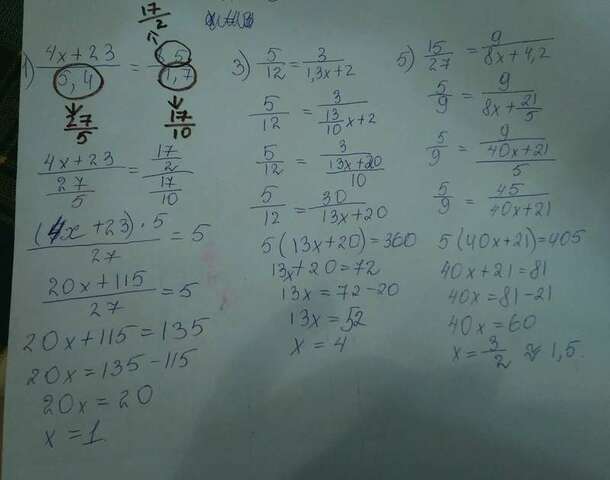 1) (4x+23)/(5,4) = (8,5)/(1,7)
17/2
27/5
17/10
(4x+23)/(27/5) = (17/2)/(17/10)
((4x+23)·5)/27 = 5
(20x+115)/27 = 5
20x+115=135
20x=135-115
20x=20
x=1.
3) 5/12 = 3/(1,3x+2)
5/12 = 3/(13/10 x+2)
5/12 = 3/((13x+20)/10)
5/12 = 30/(13x+20)
5(13x+20)=360
13x+20=72
13x=72-20
13x=52
x=4
5) 15/27 = 9/(8x+4,2)
5/9 = 9/(8x+21/5)
5/9 = 9/((40x+21)/5)
5/9 = 45/(40x+21)
5(40x+21)=405
40x+21=81
40x=81-21
40x=60
x=3/2 ≈ 1,5.